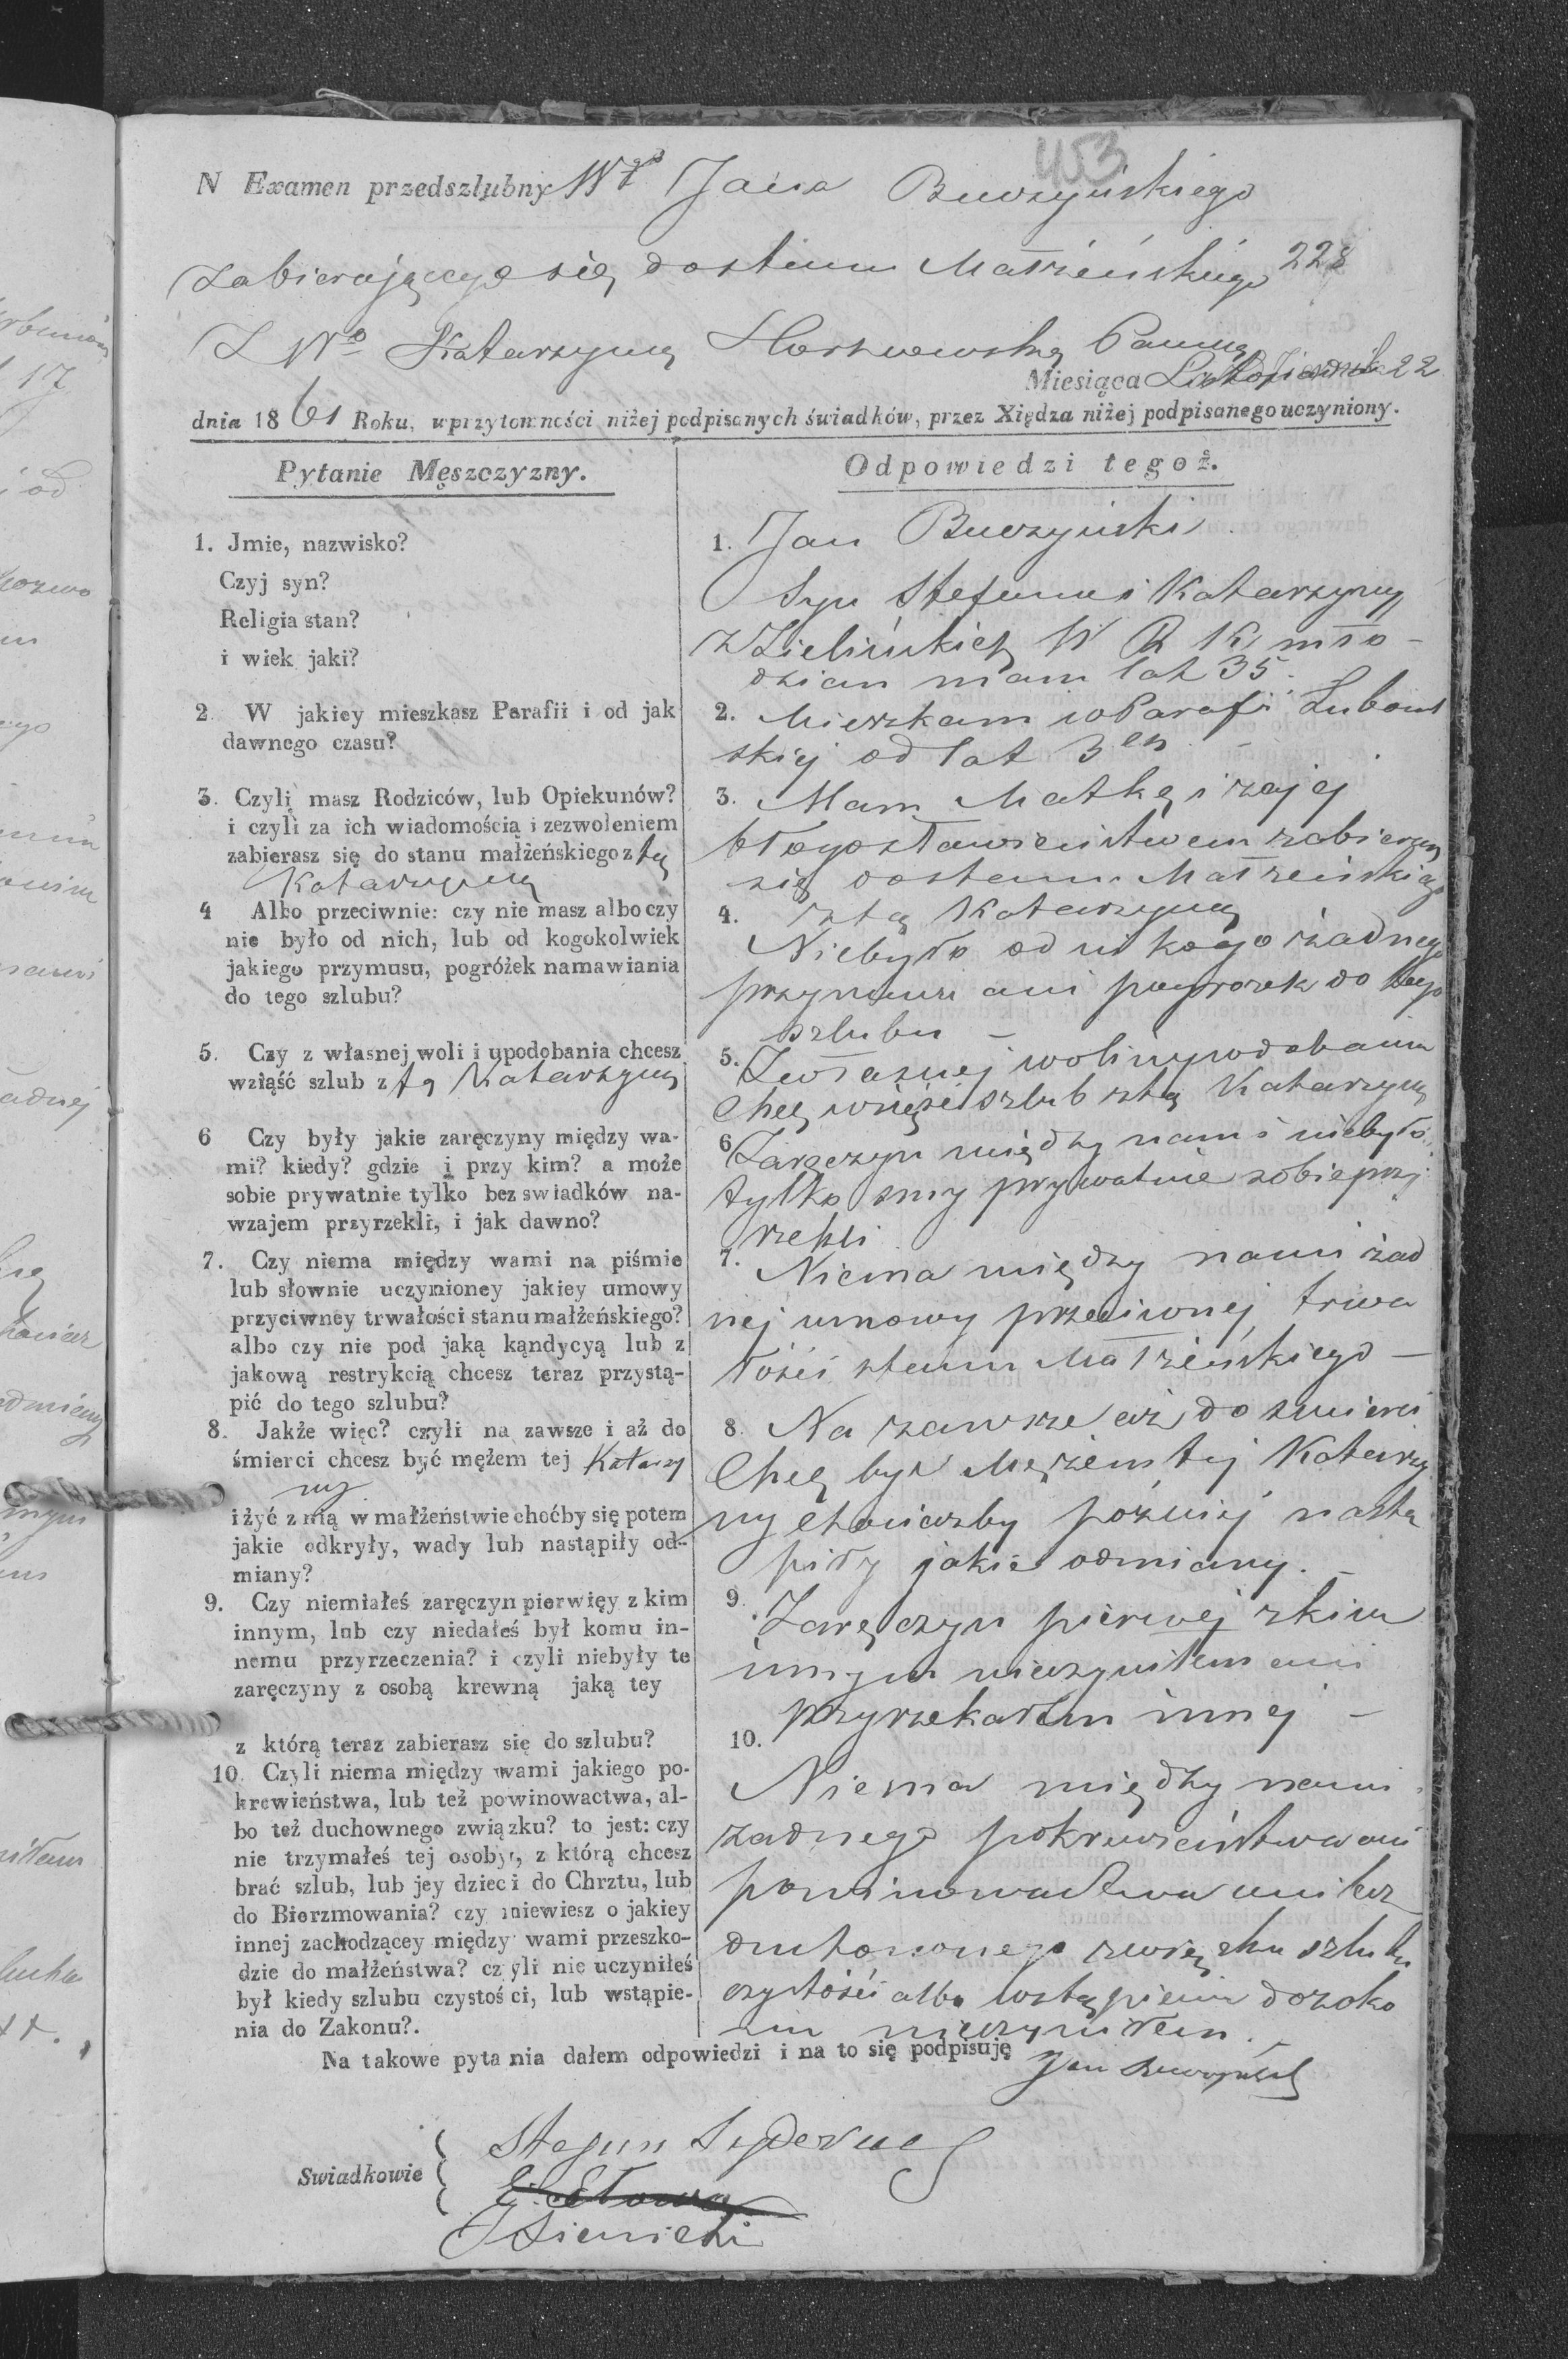 453
N Examen przedszlubny Wgo Jana Buczyńskiego
Zabierającego się do stanu Małżeńskiego 228
Z Wo Katarzyną Panną
Miesiąca Listopada 22
dnia 1861 Roku, w przytomności niżej podpisanych świadków, przez Xiędza niżej podpisanego uczyniony.
Pytanie Męszczyzny.
1. Jmie, nazwisko?
Czyj syn?
Religia stan?
i wiek jaki?
2 W jakiey mieszkasz Parafii i od jak
dawnego czasu?
3. Czyli masz Rodziców, lub Opiekunów?
i czyli za ich wiadomością i zezwoleniem
zabierasz się do stanu małżeńskiego z tą
Katarzyną
4 Albo przeciwnie: czy nie masz albo czy
nie było od nich, lub od kogokolwiek
jakiego przymusu, pogróżek namawiania
do tego szlubu?
5. Czy z własnej woli i upodobania chcesz
wziąść szlub z tą Katarzyną
6 Czy były jakie zaręczyny między wa-
mi? kiedy? gdzie i przy kim? a może
sobie prywatnie tylko bez swiadków na-
wzajem przyrzekli, i jak dawno?
7. Czy niema między wami na piśmie
lub słownie uczynioney jakiey umowy
przyciwney trwałości stanu małżeńskiego?
albo czy nie pod jaką kąndycyą lub z
jakową restrykcią chcesz teraz przystą-
pić do tego szlubu?
8. Jakże więc? czyli na zawsze i aż do
śmierci chcesz być mężem tej Katarzy
ny
i żyć z nią w małżeństwie choćby się potem
jakie odkryły, wady lub nastąpiły od-
miany?
9. Czy niemiałeś zaręczyn pierwięy z kim
innym, lub czy niedałeś był komu in-
nemu przyrzeczenia? i czyli niebyły te
zaręczyny z osobą krewną jaką tey
z którą teraz zabierasz się do szlubu?
10. Czyli niema między wami jakiego po-
krewieństwa, lub też powinowactwa, al-
bo też duchownego związku? to jest: czy
nie trzymałeś tej osoby, z którą chcesz
brać szlub, lub jey dzieci do Chrztu, lub
do Bierzmowania? czy niewiesz o jakiey
innej zachodzącey między wami przeszko-
dzie do małżeństwa? czyli nie uczyniłeś
był kiedy szlubu czystości, lub wstąpie-
nia do Zakonu?.
Odpowiedzi tegoż.
1. Jan Buczyński
Syn Stefana i Katarzyny
z Zielińskich W R K mło-
dzian mam lat 35.
2. Mieszkam w Parafi Lubom
skiej od lat 3ch
3. Mam Matkę i za jej
błogosławieństwem zabieram
się do stanu Małżeńskiego
z tą Katarzyną
4. Niebyło od nikogo żadnego
przymusu ani pogrozek do tego
szlubu –
5. Z własnej woli i upodobania
Chcę wziąść szlub z tą Katarzyną
6 Zaręczyn między nami niebyło
tylko smy prywatnie sobie przy
rzekli
7. Niema między nami żad
nej umowy przeciwnej trwa
łości stanu Małżeńskiego –
8. Na zawsze aż do smierci
Chcę być Mężem tej Katarzy
ny chociażby poźniej nastą
piły jakie odmiany. –
9. Zaręczyn pierwej z kim
innym nieczyniłem ani
przyrzekałem innej –
10. Niema między nami
żadnego pokrewieństwa ani
powinowactwa ani też
duchownego związku szlubu
czystości albo wstąpienia do zako
nu nieczyniłem.
Na takowe pytania dałem odpowiedzi i na to się podpisuję Jan Buczyński
Swiadkowie